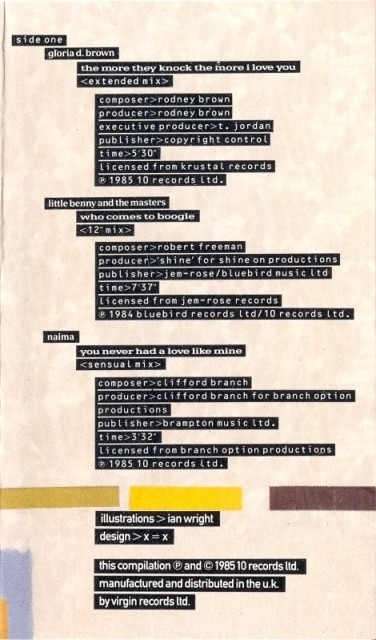 side one
gloria d. brown
the more they knock the more i love you
<extended mix>
composer>rodney brown
producer>rodney brown
executive producer>t. jordan
publisher>copyright control
time>5'30"
licensed from krustal records
℗ 1985 10 records ltd.
little benny and the masters
who comes to boogie
<12" mix>
composer>robert freeman
producer>'shine' for shine on productions
publisher>jem-rose/bluebird music ltd
time>7'37"
licensed from jem-rose records
℗ 1984 bluebird records ltd/10 records ltd.
naima
you never had a love like mine
<sensual mix>
composer>clifford branch
producer>clifford branch for branch option
productions
publisher>brampton music ltd.
time>3'32"
licensed from branch option productions
℗ 1985 10 records ltd.
illustrations > ian wright
design > x = x
this compilation ℗ and © 1985 10 records ltd.
manufactured and distributed in the u.k.
by virgin records ltd.